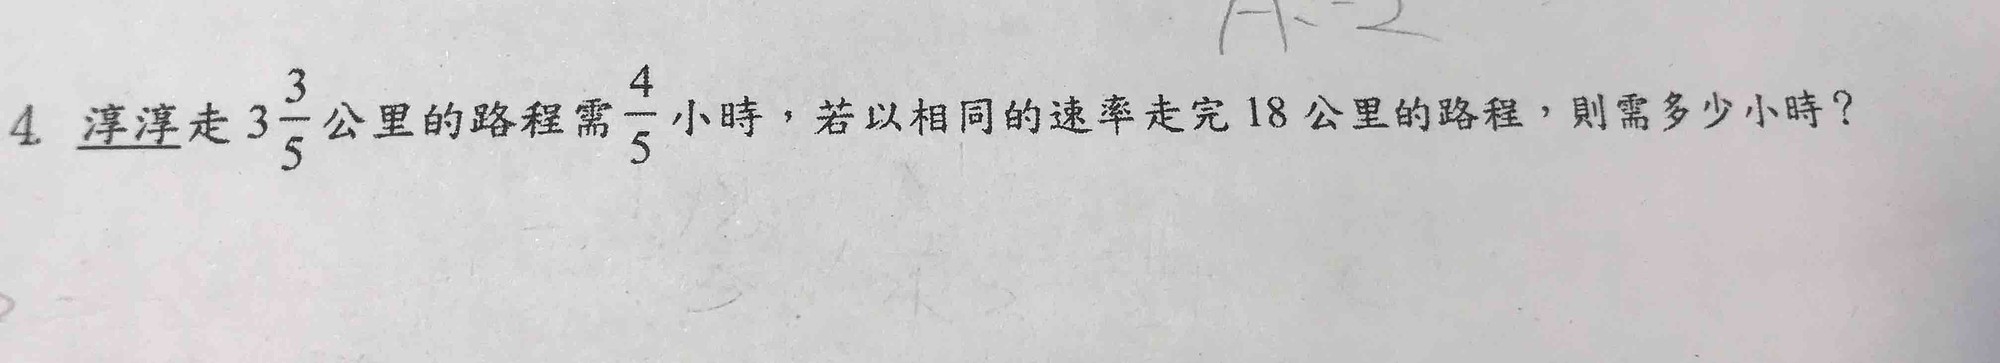 A、-2
4. 淳淳走 3 3/5 公里的路程需 4/5 小時，若以相同的速率走完 18 公里的路程，則需多少小時？